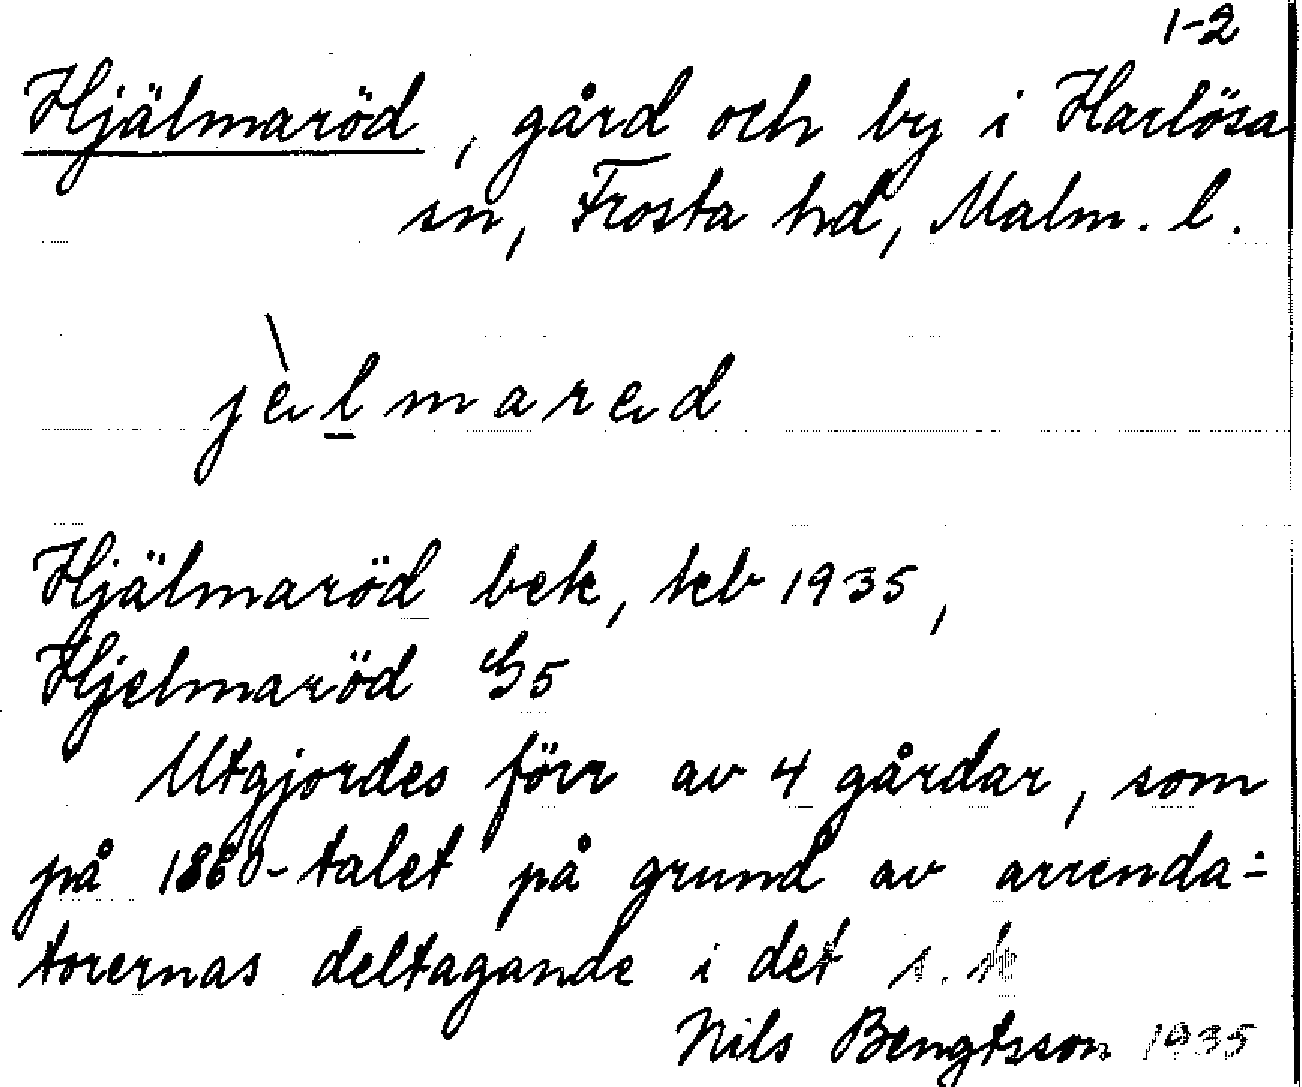 1-2
Hjälmaröd, gård och by i Harlösa
sn, Frosta hd, Malm. l.
jèlmared
Hjälmaröd bek, keb 1935,
Hjelmaröd G5
Utgjordes förr av 4 gårdar, som
på 1860-talet på grund av arrenda-
torernas deltagande i det s.k
Nils Bengtsson 1935